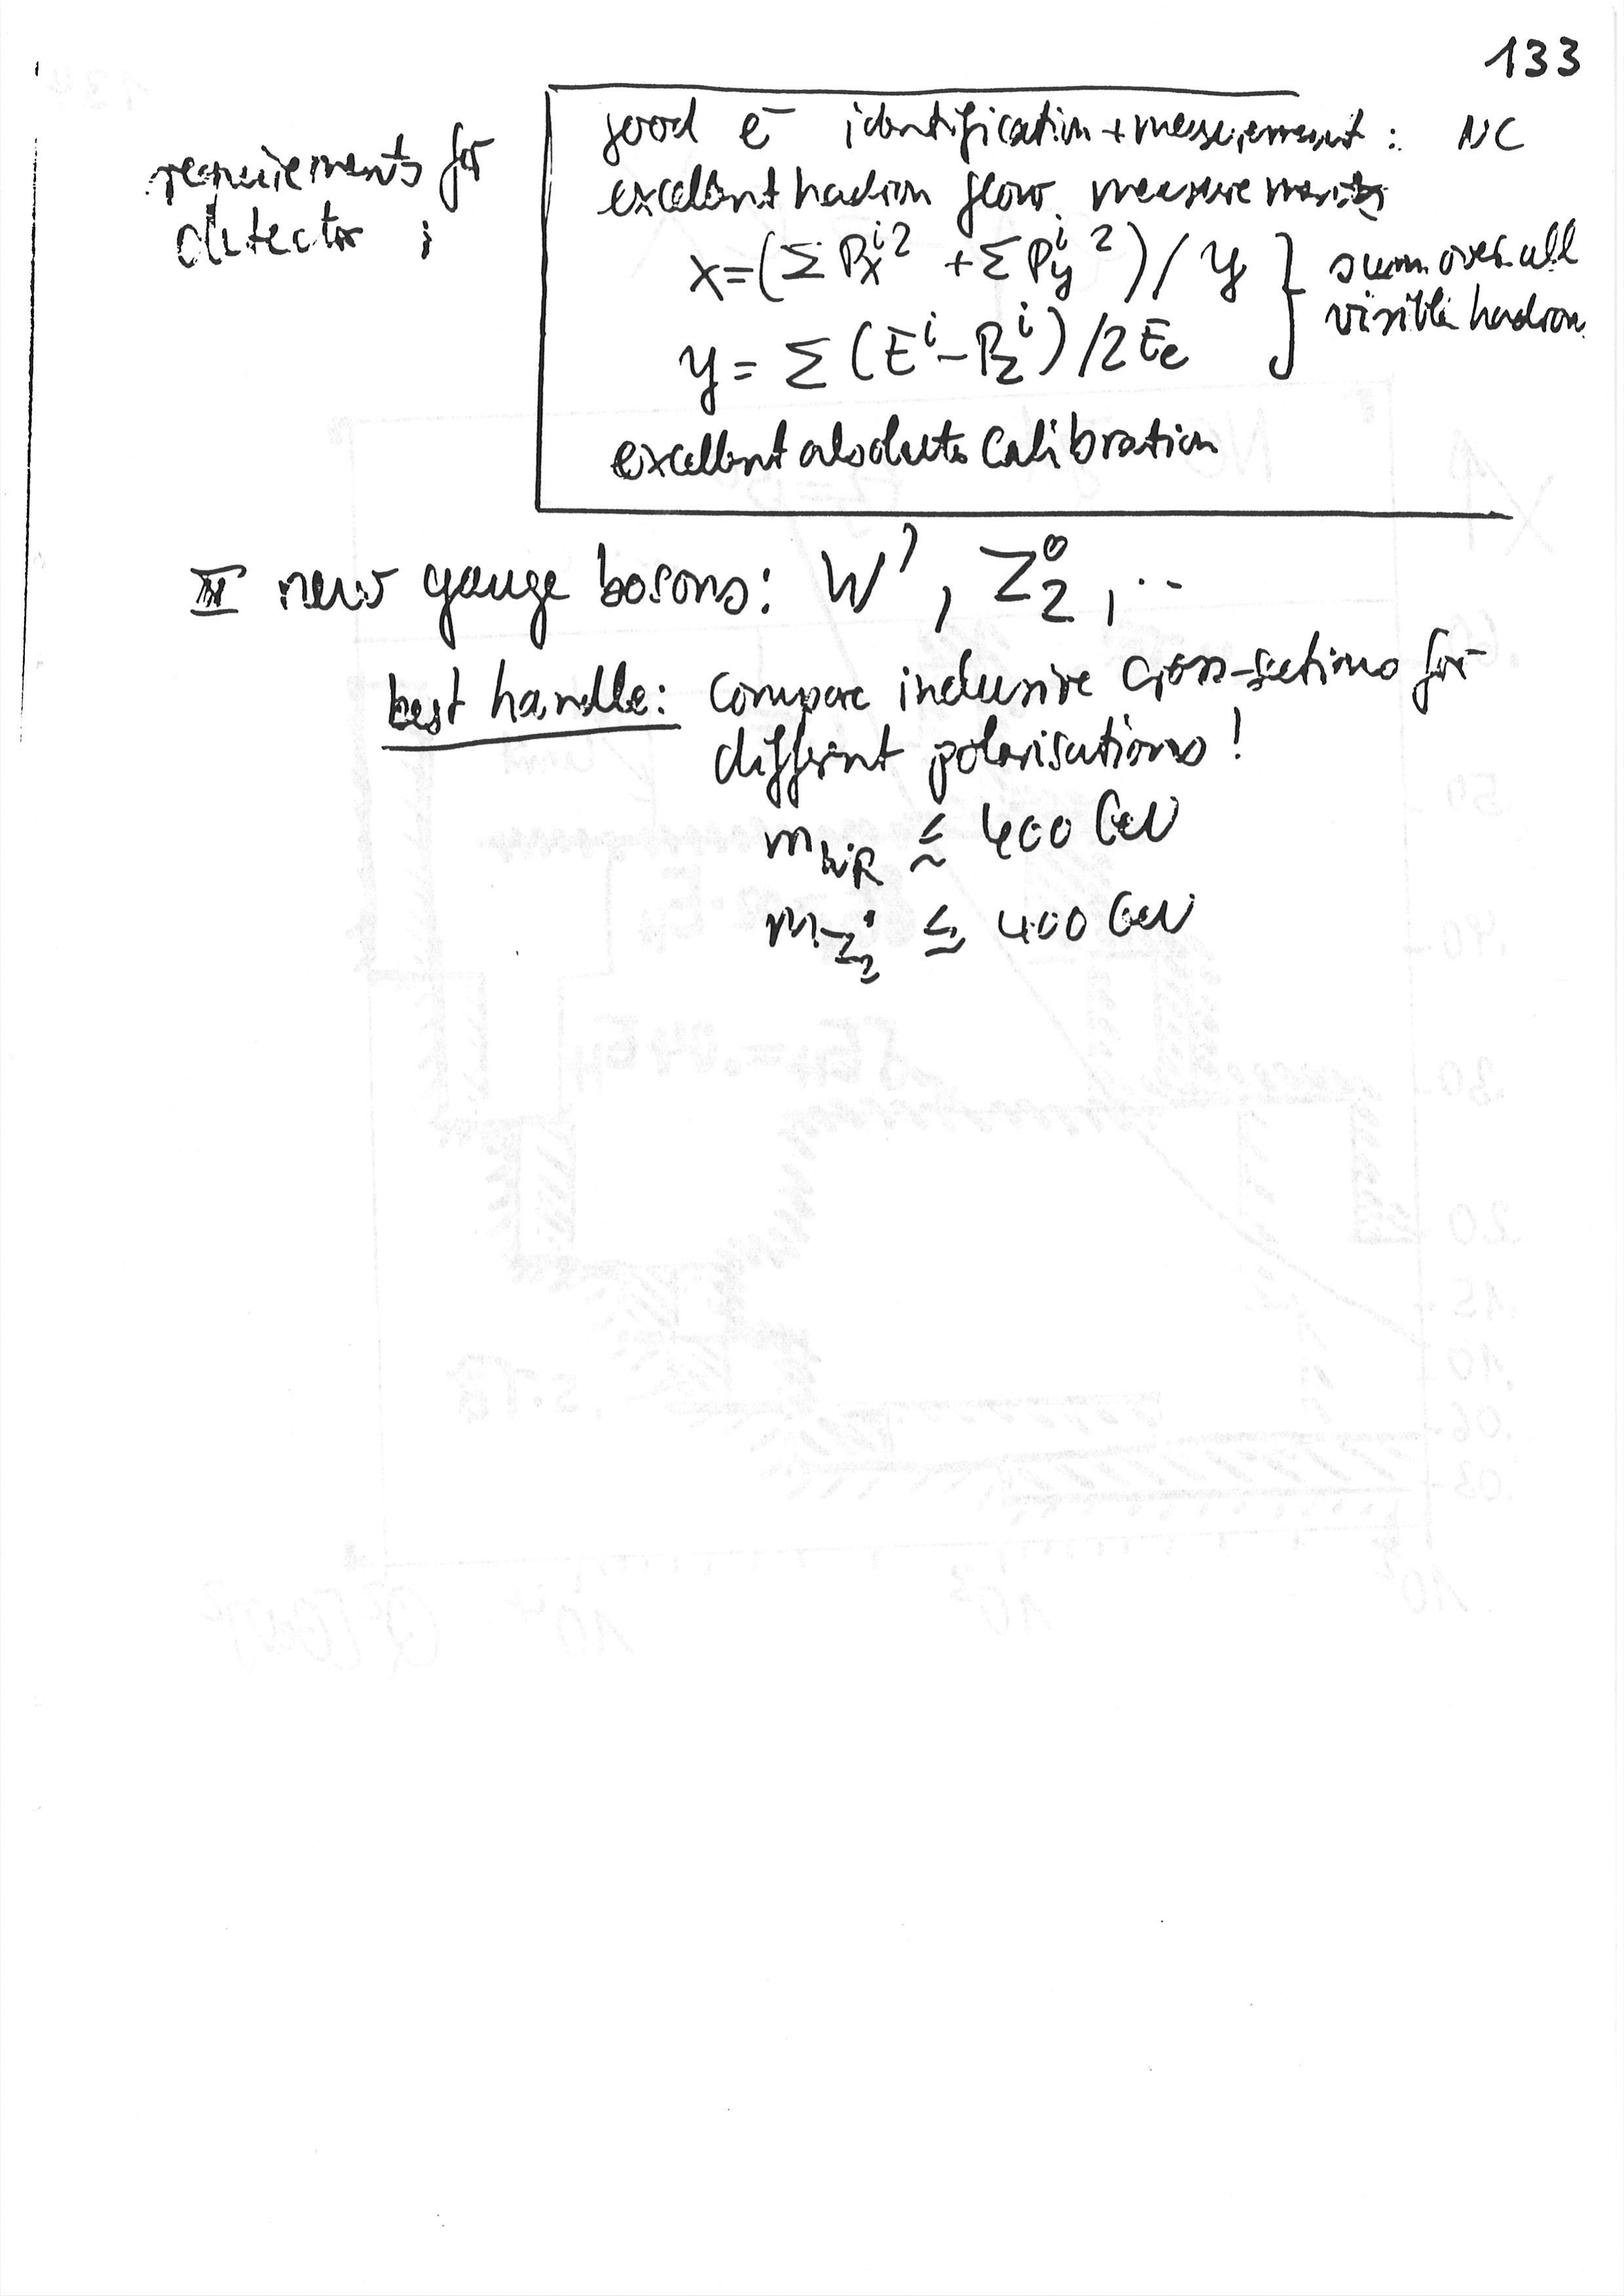 133
requirements for
detector :
good e⁻ identification + measurement : NC
excellent hadron flow measurements
x = (Σ Pxⁱ² + Σ Pyⁱ²) / y
y = Σ (Eⁱ - Pzⁱ) / 2Ee
} sum over all
visible hadrons
excellent absolute calibration
II new gauge bosons: W', Z₂⁰, ..
best handle: compare inclusive cross-sections for
different polarisations!
m_WR ≲ 400 GeV
m_Z₂ ≲ 400 GeV